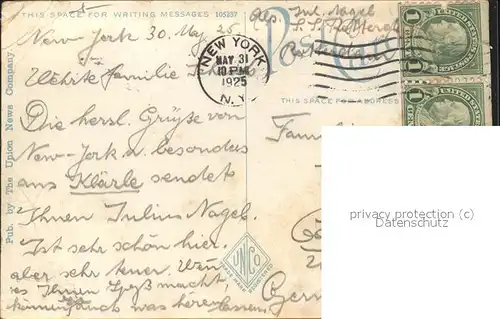 THIS SPACE FOR WRITING MESSAGES 105257
New-York 30. May 25
Familie
Die herzl. Grüße von
New-York u. besonders
aus Klärle sendet
Ihnen Julius Nagel.
Ist sehr schön hier.
aber sehr teuer. Wenn
es Ihnen Spaß macht,
was hören lassen.
Pub. by The Union News Company.
NEW YORK
MAY 31
10 PM
1925
N.Y.
Abs. Jul. Nagel
S.S.
Post Card
THIS SPACE FOR ADDRESS
UNCO
UNITED STATES POSTAGE
1 CENT 1
1 CENT 1
privacy protection (c)